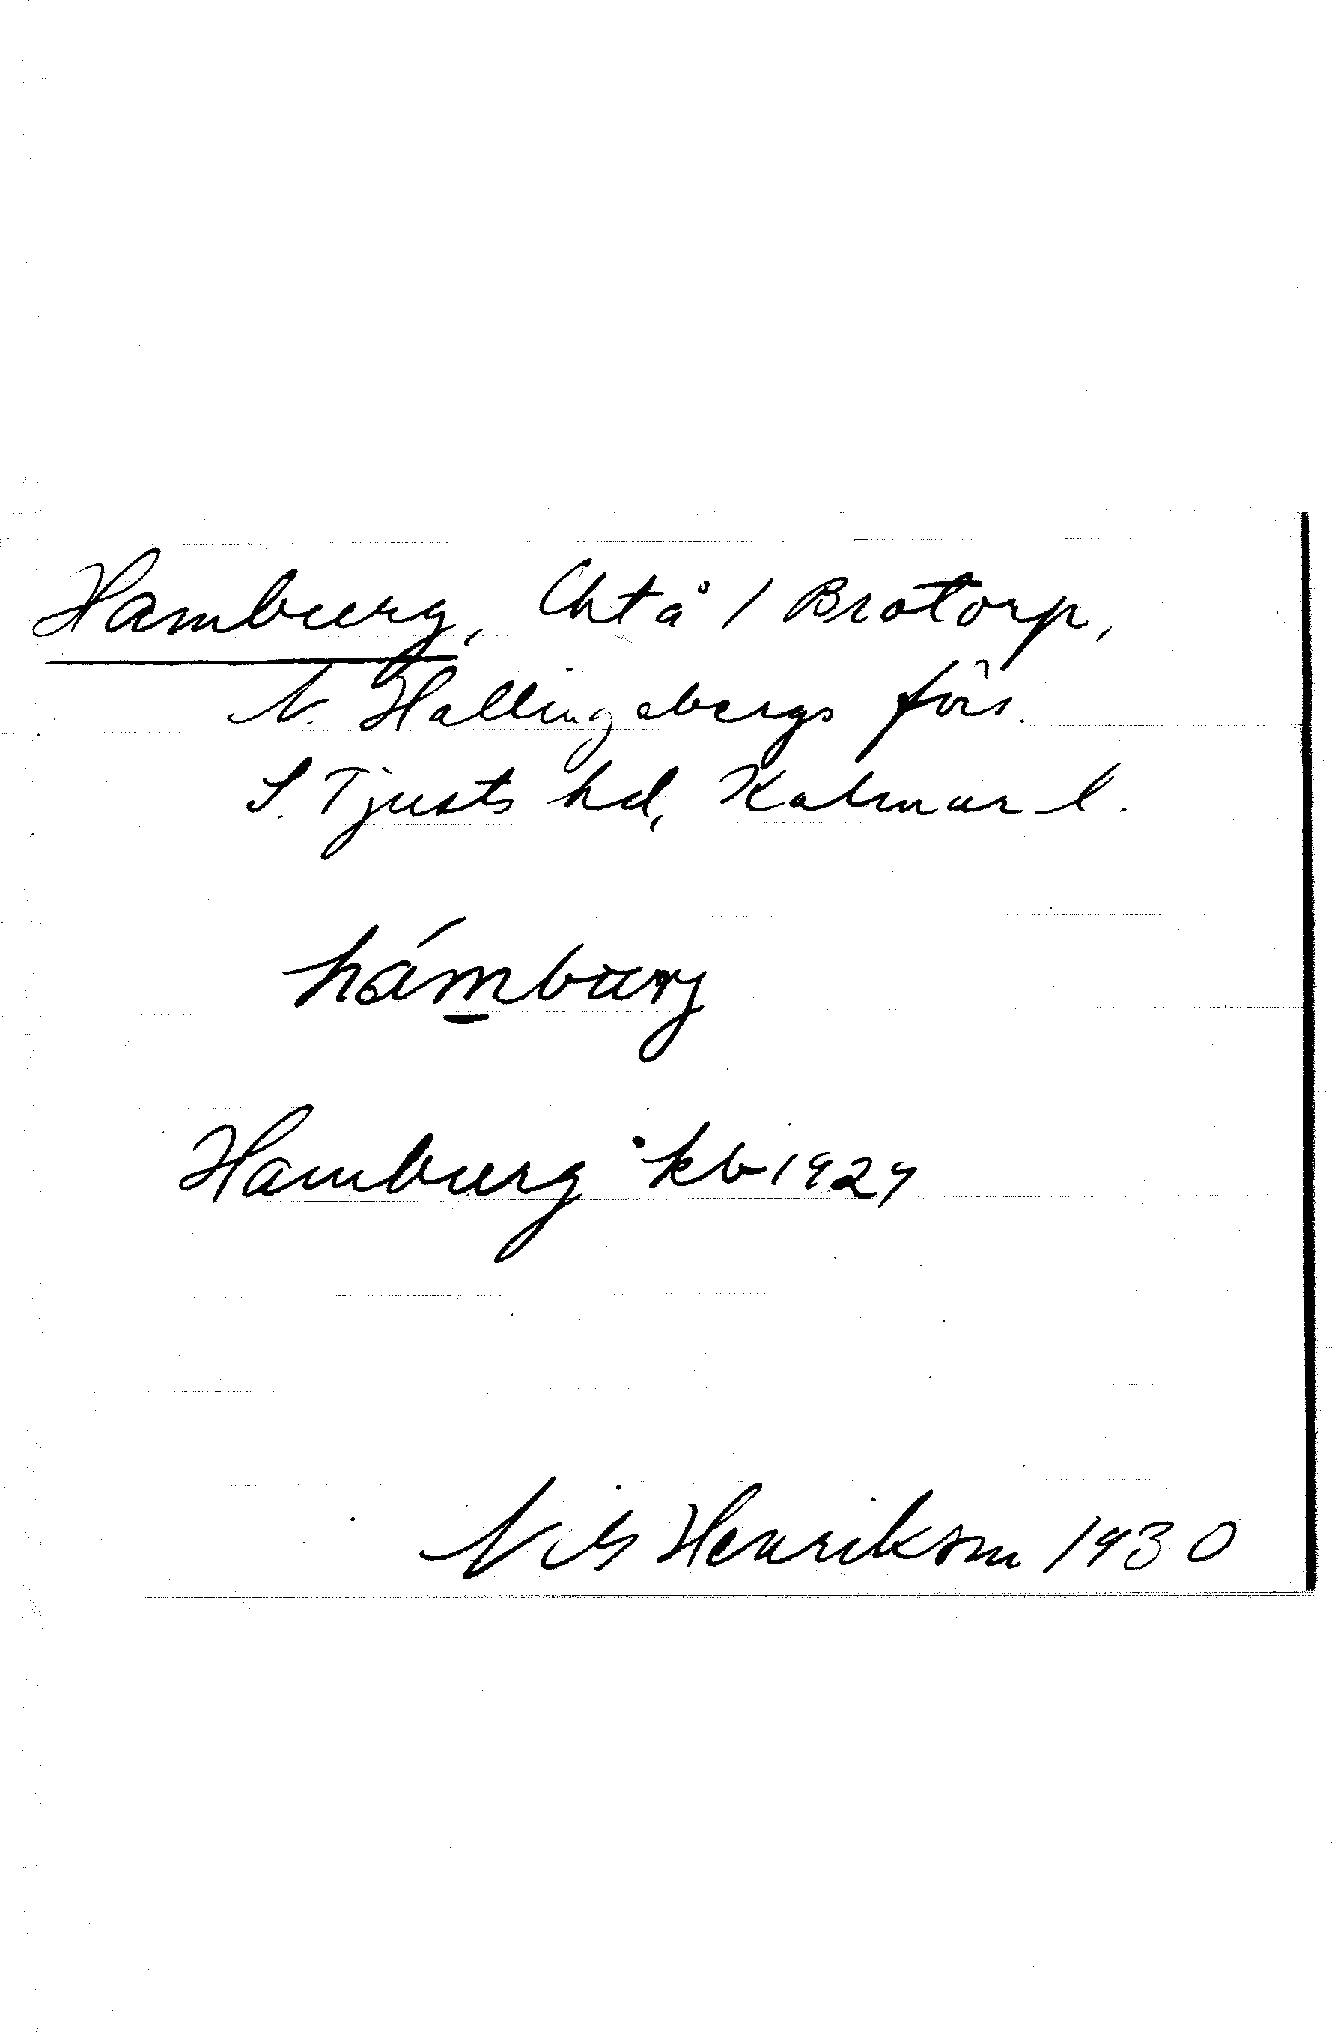 Hamburg, lht å / Brotorp,
N. Hallingebergs förs.
S. Tjusts hd, Kalmar l.
hámburj
Hamburg kb 1927
Nils Henrikson 1930